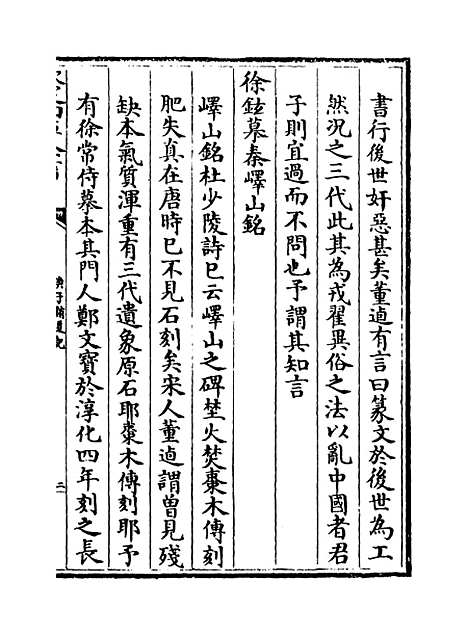 書行後世奸惡甚矣董逌有言曰篆文於後世為工
然況之三代此其為戎翟異俗之法以亂中國者君
子則宜過而不問也予謂其知言
徐鉉摹秦嶧山銘
嶧山銘杜少陵詩已云嶧山之碑埜火焚棗木傳刻
肥失真在唐時已不見石刻矣宋人董逌謂曾見殘
缺本氣質渾重有三代遺象原石耶棗木傳刻耶予
有徐常侍摹本其門人鄭文寶於淳化四年刻之長